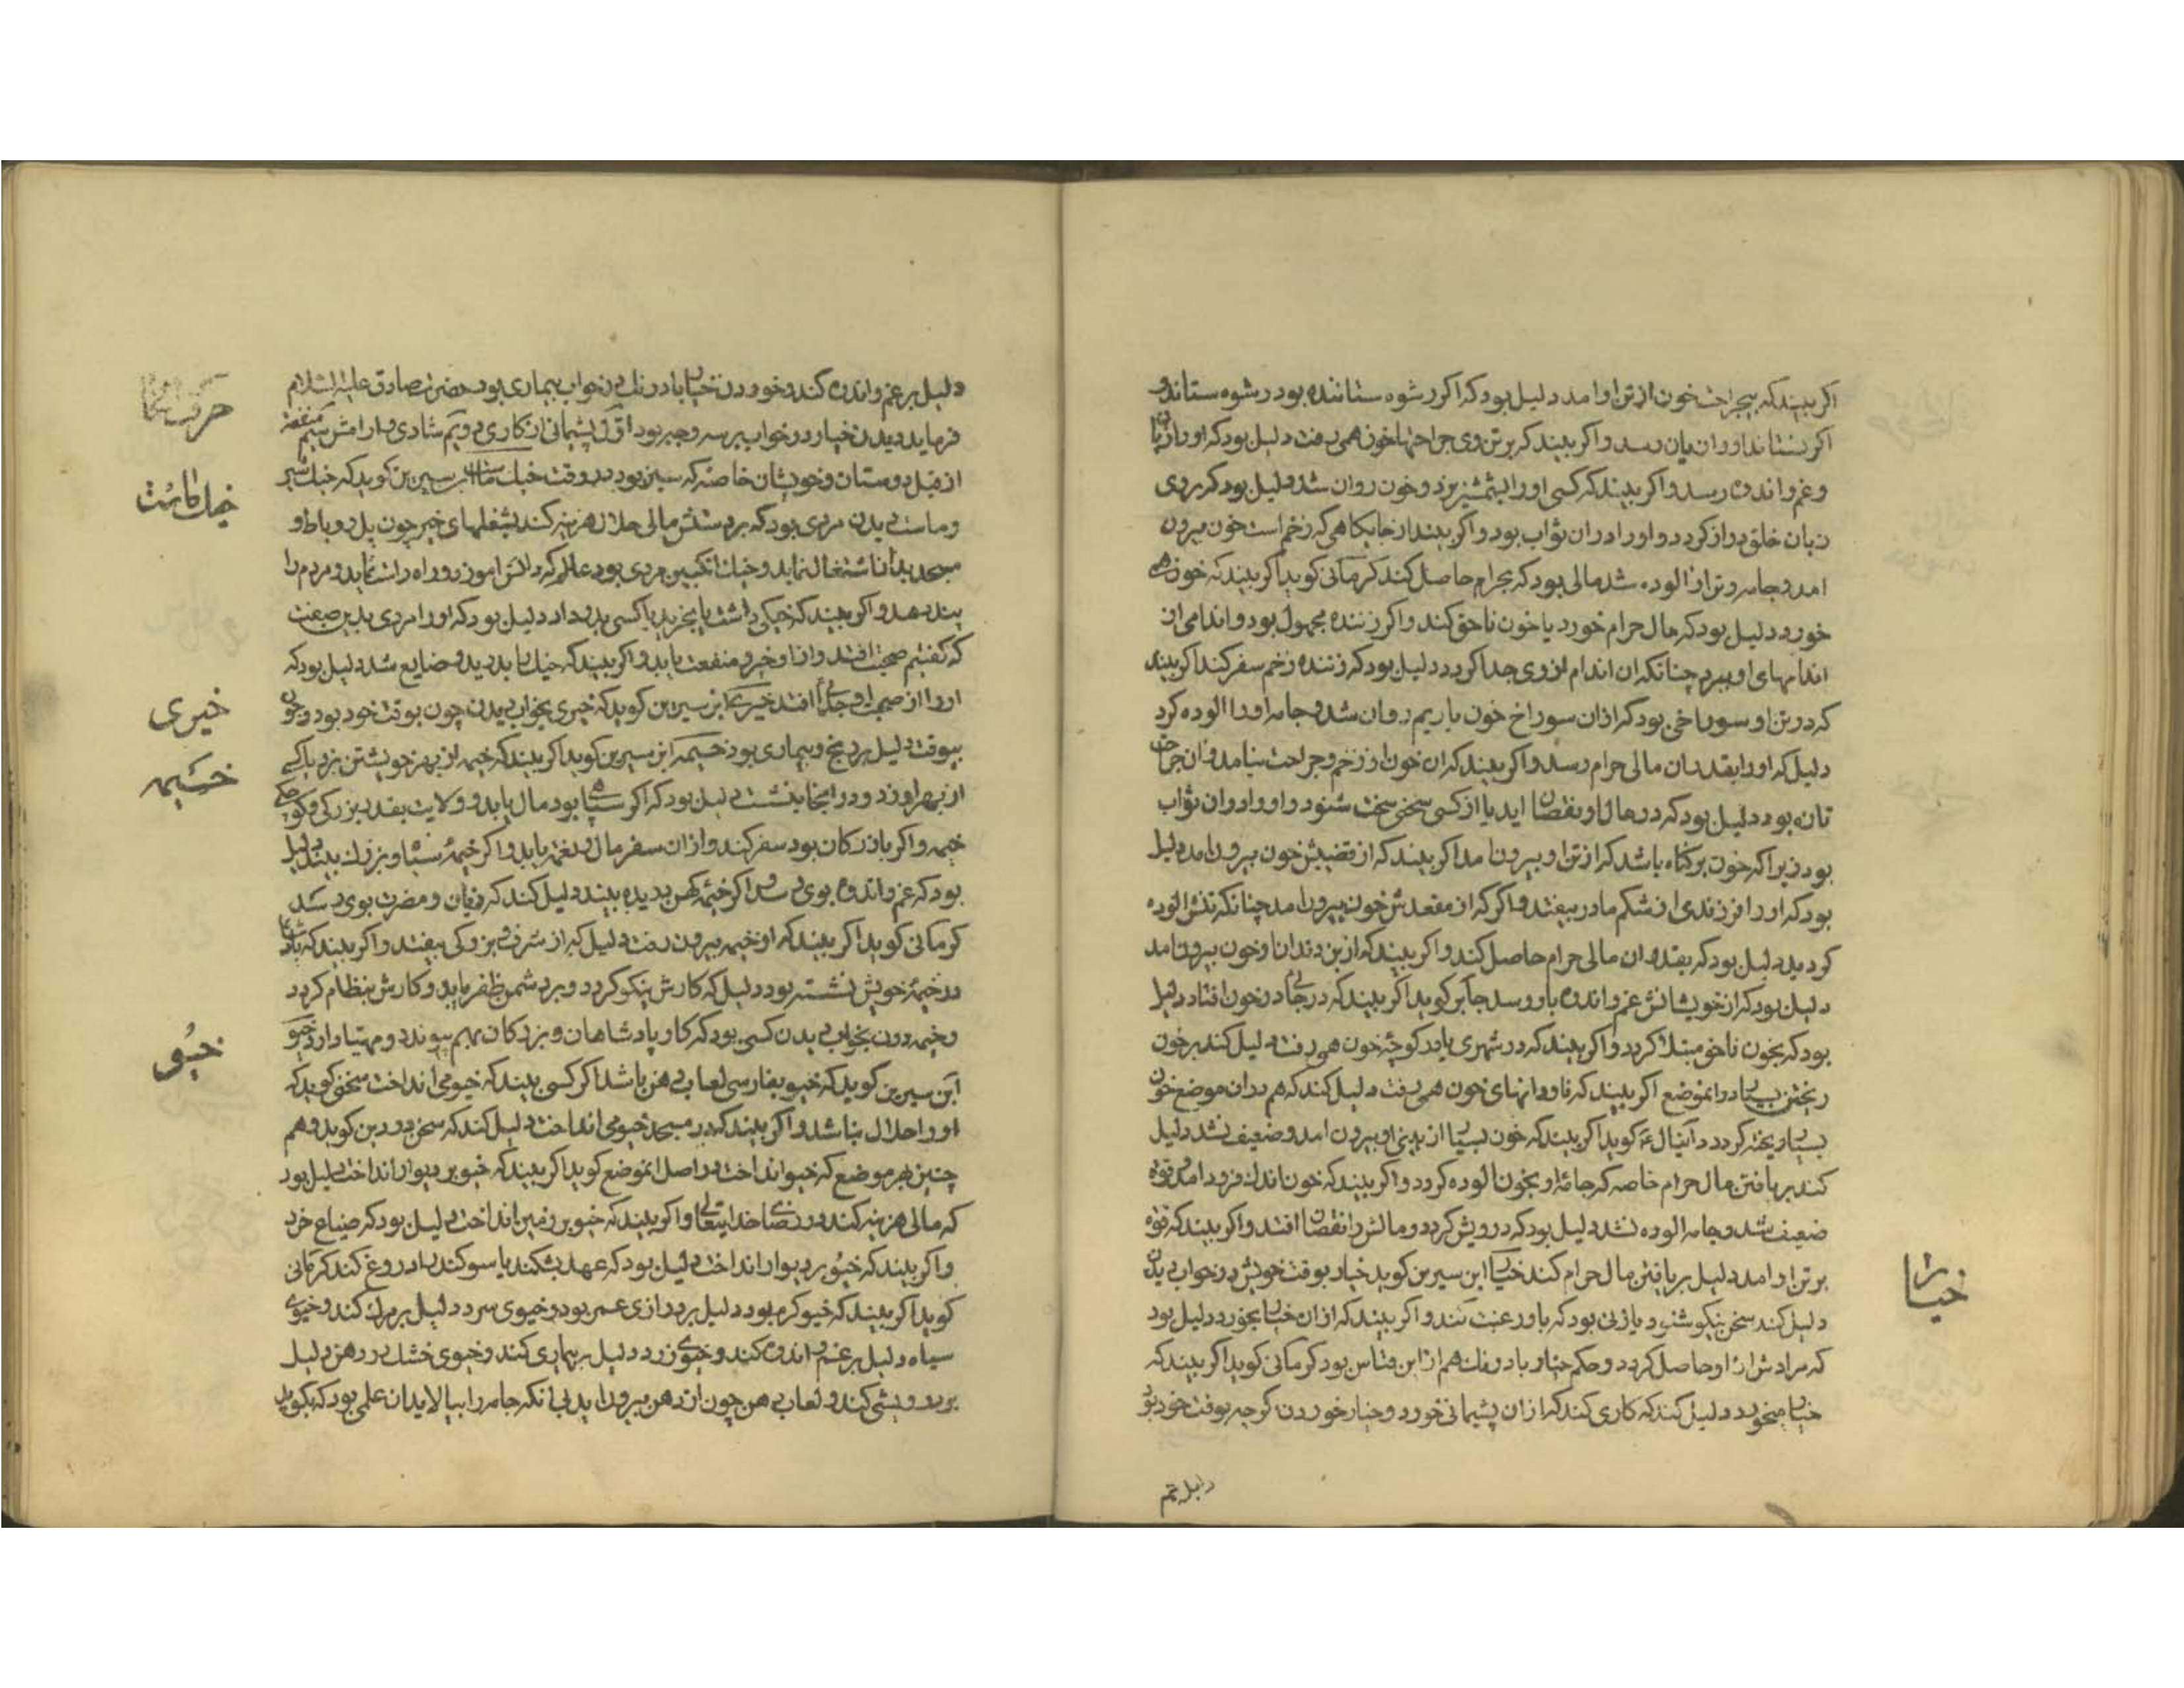 اکر بیند که بیجراحت خون از تن او امد دلیل بود که اکر رشوه ستاننده بود رشوه ستاند و
اکر نستاند او را زیان رسد و اکر بیند که بر تن وی جراحتها خون همی رفت دلیل بود که او را زیان
و غم و اندوه رسد و اکر بیند که کسی او را بشمشیر بزد و خون روان شد دلیل بود که بر وی
زبان خلق دراز کردد و او را دران ثواب بود و اکر بیند از جایکاهی که زخم است خون بیرون
امد و جامه و تن او الوده شد مالی بود که بحرام حاصل کند کرمانی کوید اکر بیند که خون همی
خورد دلیل بود که مال حرام خورد یا خون ناحق کند و اکر زننده مجهول بود و اندامی از
اندامهای او ببرد چنانکه ان اندام از وی جدا کردد دلیل بود که زننده زخم سفر کند اکر بیند
که در تن او سوراخی بود که ازان سوراخ خون یا ریم روان شد و جامه او را الوده کرد
دلیل که او را بقدر ان مالی حرام رسد و اکر بیند که ان خون از زخم و جراحت نیامد و ان جراحت
تازه بود دلیل بود که در مال او نقصان اید یا از کسی سخنی سخت شنود و او را دران ثواب
بود زیرا که خون بر کناه باشد که از تن او بیرون امد اکر بیند که از قضیبش خون بیرون امد دلیل
بود که او را فرزندی از شکم مادر بیفتد و اکر که از مقعدش خون بیرون امد چنانکه تنش الوده
کردید دلیل بود که بقدر ان مالی حرام حاصل کند و اکر بیند که از بن دندان او خون بیرون امد
دلیل بود که از خویشانش غم و اندوه باو رسد جابر کوید اکر بیند که در جائی در خون افتاد دلیل
بود که بخون ناحق مبتلا کردد و اکر بیند که در شهری یا در کوچه خون همی رفت دلیل کند بر خون
ریختن بسیار درانموضع اکر بیند که ناودانهای خون همی رفت دلیل کند که هم دران موضع خون
بسیار ریخته کردد دانیال ع کوید اکر بیند که خون بسیار از بینی او بیرون امد و ضعیف نشد دلیل
کند بر یافتن مال حرام خاصه که جامه او بخون الوده کردد و اکر بیند که خون اندک فرود امد و قوه
ضعیف شد و جامه الوده نشد دلیل بود که درویش کردد و مالش را نقصان افتد و اکر بیند که قوه
بر تن او امد دلیل بر یافتن مال حرام کند خیار ابن سیرین کوید خیار بوقت خویش در خواب دیدن
دلیل کند سخن نیکو شنود یا زنی بود که باو رغبت کند و اکر بیند که ازان خیار بخورد دلیل بود
که مرادش ازو حاصل کردد و حکم خیار بادرنک هم ازین قیاس بود کرمانی کوید اکر بیند که
خیار میخورد دلیل کند که کاری کند که ازان پشیمانی خورد و خیار خوردن کرچه بوقت خود بود
خیار
دلیل بر غم
دلیل بر غم و اندوه کند و خوردن خیار بادرنک در خواب بیماری بود حضرت صادق علیه السلام
فرماید دیدن خیار در خواب بر سه وجه بود اول پشیمانی از کاری دویم شادی و ارامش سیم منفعت
از قبل دوستان و خویشان خاصه که سبز بود در وقت خیک ماست ابن سیرین کوید که خیک شیر
و ماست دیدن مردی بود که بر دستش مالی حلال هزینه کند بشغلهای خیر چون پل و رباط و
مسجد بدان اشتغال نماید و خیک انکبین مردی بود عالم که دانش اموزد و راه راست نماید و مردم را
پند دهد و اکر بیند که خیکی داشت یا بخرید یا کسی بدو داد دلیل بود که او را مردی بدین صفت
که کفتیم صحبت افتد و ازو خیر و منفعت یابد و اکر بیند که خیک بدرید و ضایع شد دلیل بود که
او را از صحبت او جدائی افتد خیری ابن سیرین کوید که خیری بخواب دیدن چون بوقت خود بود و چون
بیوقت دلیل بر رنج و بیماری بود خیمه ابن سیرین کوید اکر بیند که خیمه از بهر خویشتن بزد یا کسی
از بهر او زد و در انجا بنشست دلیل بود که اکر سپاهی بود مال یابد و ولایت بقدر بزرکی و کوچکی
خیمه و اکر بازرکان بود سفر کند و ازان سفر مال و نعمت یابد و اکر خیمه سیاه و بزرک بیند دلیل
بود که غم و اندوه بوی رسد و اکر خیمه کهن بدیده بیند دلیل کند که زیان و مضرت بوی رسد
کرمانی کوید اکر بیند که او از خیمه بیرون رفت دلیل که از شرف و بزرکی بیفتد و اکر بیند که پادشاه
در خیمه خویش نشسته بود دلیل که کارش نیکو کردد و بر دشمن ظفر یابد و کارش بنظام کردد
و خیمه دوز بخواب دیدن کسی بود که کار پادشاهان و بزرکان بهم پیوندد و مهیا دارد خیو
ابن سیرین کوید که خیو بفارسی لعاب دهن باشد اکر کسی بیند که خیو می انداخت سخنی کوید که
او را حلال نباشد و اکر بیند که در مسجد خیو می انداخت دلیل کند که سخن در دین کوید و هم
چنین هر موضع که خیو انداخت در اصل انموضع کوید اکر بیند که خیو بر دیوار انداخت دلیل بود
که مالی هزینه کند در رضای خدایتعالی و اکر بیند که خیو بر زمین انداخت دلیل بود که ضیاع خرد
و اکر بیند که خیو بر دیوار انداخت دلیل بود که عهد بشکند یا سوکند بدروغ کند کرمانی
کوید اکر بیند که خیو کرم بود دلیل بر درازی عمر بود و خیوی سرد دلیل بر مرک کند و خیوی
سیاه دلیل بر غم و اندوه کند و خیوی زرد دلیل بر بیماری کند و خیوی خشک در دهن دلیل
بر درویشی کند و لعاب دهن چون از دهن بیرون اید بی انکه جامه را بیالاید ان علمی بود که بکوید
خیک ماست
خیری
خیمه
خیو